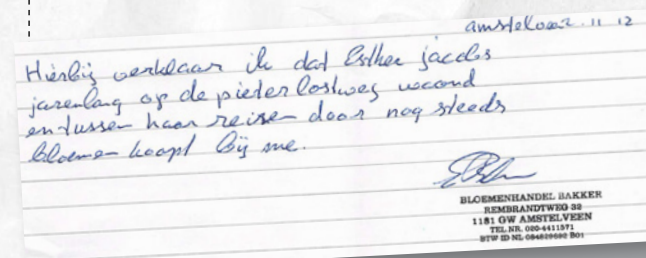 Hierbij verklaar ik dat Esther jacobs
jarenlang op de pieter lastweg woond
en tussen haar reizen door nog steeds
bloemen koopt bij me.
BLOEMENHANDEL BAKKER
REMBRANDTWEG 32
1181 GW AMSTELVEEN
TEL. NR. 020-4411571
BTW ID NL B01